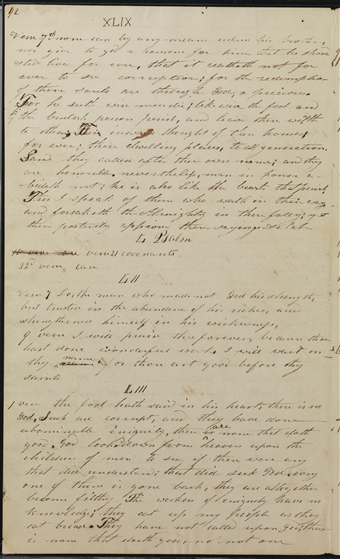 92
XLIX
vers 7th none can by any means redeem his brother,
nor give to god a ransom for him that he should
still live for ever, that it ceaseth not for
ever to see corruption; for the redemption
of their souls are through God, & precious.
For he seeth wise men die; likewise the fool and
the brutish person perish, and leave their wealth
to others; Their inward thought of their houses
for ever; their dwelling places, to all generations.
Lands they called after their own names; and they
are honorable. nevertheless, man in honor a-
bideth not; he is also like the beasts that perish
This I speak of them who walk in their way
and forsaketh the Almighty in their folly; yet
their posterity approve their sayings. Selah
L Psalm
vers 21 covenants
22d vers can
LII
vers 7 Lo, the man who made not God his strength,
but trusted in the abundance of his riches, and
strengthened himself in his wickedness,
9 vers I will praise thee forever, because thou
hast done wonderful works, I will wait on
thy name; for thou art good before thy
saints
LIII
1 vers the fool hath said in his heart, there is no
God, Such are corrupt, and they have done
abominable iniquity, there are none that doeth
good. God looked down from heaven upon the
children of men to see if there were any
that did understand; that did seek God. every
one of them is gone back, they are altogether
become filthy. The workers of iniquity have no
knowledge; they eat up my people as they
eat bread. They have not called upon God, there
is none that doeth good, no not one